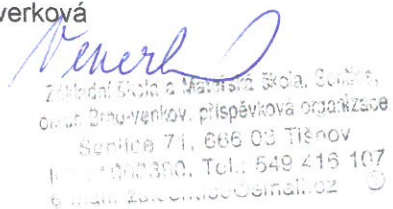 verková
Základní škola a Mateřská škola, Sentice,
okres Brno-venkov, příspěvková organizace
Sentice 71, 666 03 Tišnov
Tel.: 549 416 107